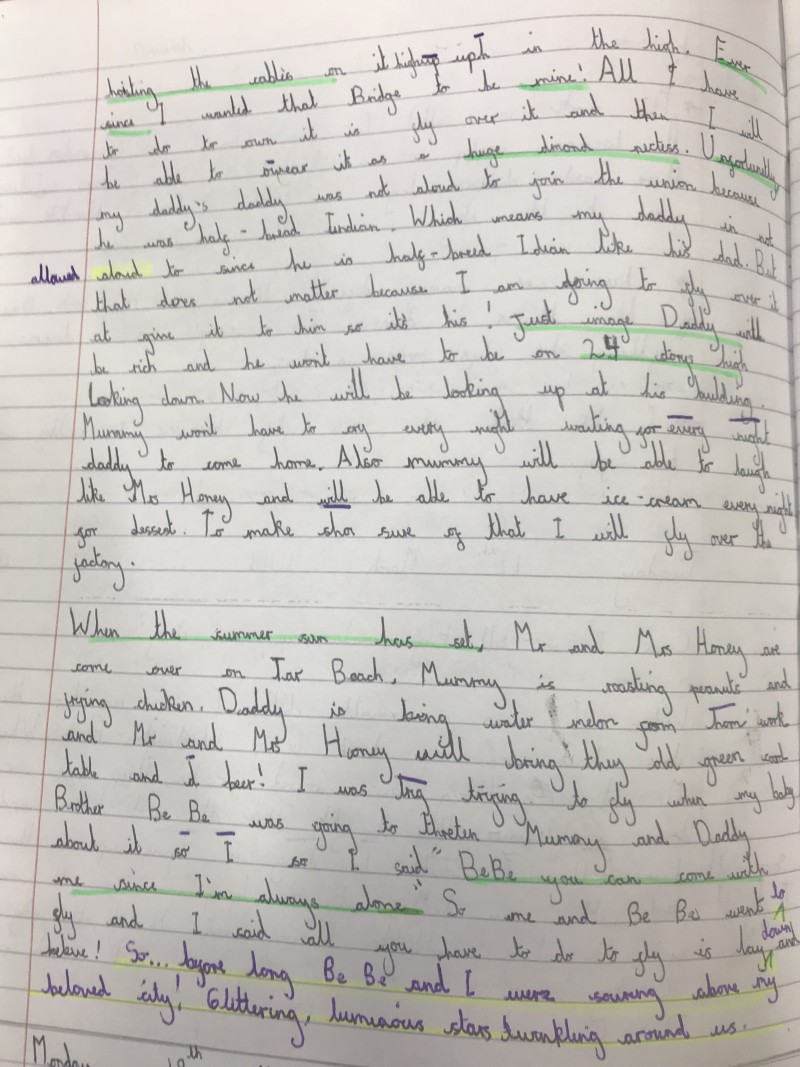 hoisting the cables on it high up up in the high. Ever
since I wanted that Bridge to be mine! All I have
to do to own it is fly over it and then I will
be able to wear it as a huge dimond necless. Unfortunally
my daddy's daddy was not aloud to join the union because
he was half-bread Indian. Which means my daddy in not
allowed aloud to since he is half-breed Idian like his dad. But
that does not matter because I am going to fly over it
at give it to him so it's his! Just image Daddy will
be rich and he won't have to be on 24 storys high
Looking down. Now he will be looking up at his bulding.
Mummy won't have to cry every night waiting for every night
daddy to come home. Also mummy will be able to laugh
like Mrs Honey and will be able to have ice-cream every night
for dessest. To make shor sure of that I will fly over the
factory.
When the summer sun has set, Mr and Mrs Honey are
come over on Tar Beach. Mummy is roasting peanuts and
frying chicken. Daddy is being water melon from work
and Mr and Mrs Hooney will bring they old green card
table and beer! I was trying to fly when my baby
Brother Be Be was going to threten Mummy and Daddy
about it so I so I said "BeBe you can come with
me since I'm always alone" So me and Be Be went to
fly and I said all you have to do to fly is lay down and
beleve! So... before long Be Be and I were souring above my
beloved city! Glittering, luminous stars twinkling around us.
Monday th